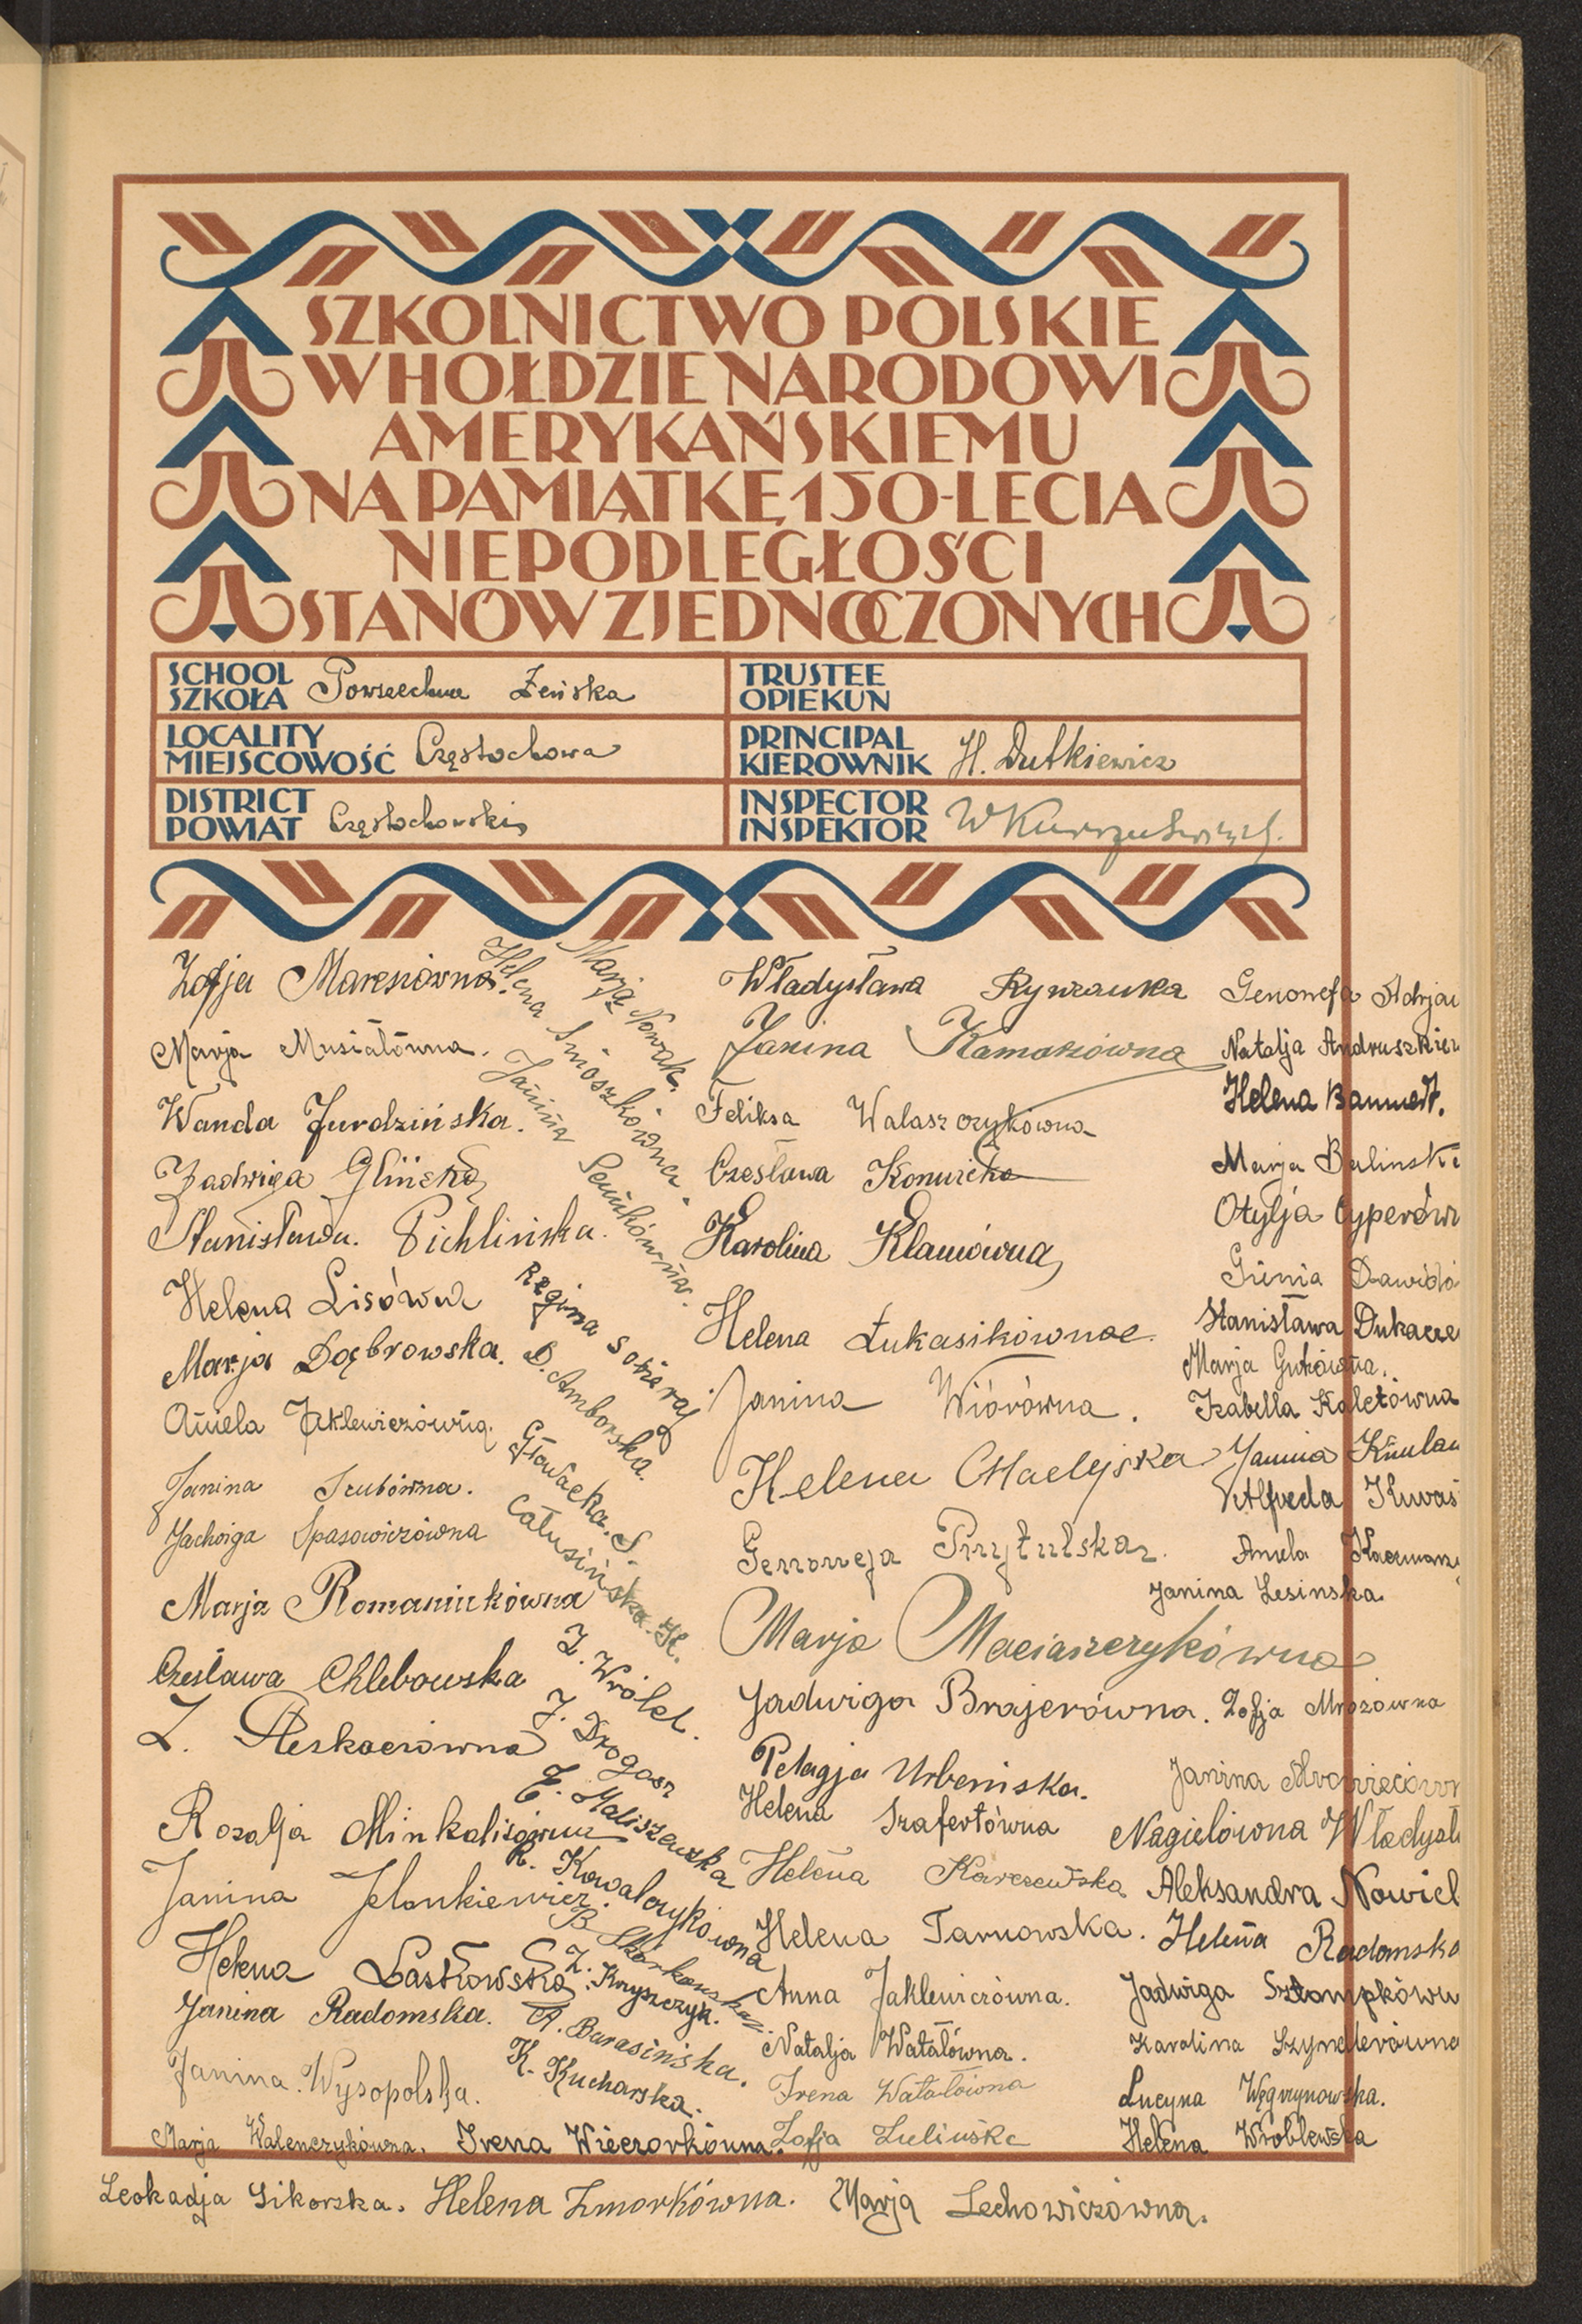 SZKOLNICTWO POLSKIE
W HOŁDZIE NARODOWI
AMERYKAŃSKIEMU
NA PAMIĄTKĘ 150-LECIA
NIEPODLEGŁOŚCI
STANÓW ZJEDNOCZONYCH
SCHOOL
SZKOŁA Powszechna Żeńska
TRUSTEE
OPIEKUN
LOCALITY
MIEJSCOWOŚĆ Częstochowa
PRINCIPAL
KIEROWNIK H. Dutkiewicz
DISTRICT
POWIAT Częstochowski
INSPECTOR
INSPEKTOR
Zofja
Marja Musiałówna.
Wanda Jurdzińska.
Jadwiga Glińska
Stanisława Pichlińska.
Helena Lisówna
Marja Dąbrowska.
Aniela Jaklewiczówna.
Janina
Jadwiga Spasowiczówna
Marja Romaniukówna
Czesława Chlebowska
Z. Pleskaczówna
Rozalja
Janina Jelonkiewicz
Helena Lastowska
Janina Radomska.
Janina Wysopolska.
Marja Walenczykówna.
Marja Nowak.
Helena Smoszkówna.
Janina
Regina Sobieraj
D. Amborska.
Głowacka. S.
Całusińska. H.
Z. Wróbel.
J. Drogosz
E. Maliszewska
R. Kowalczykówna
B. Skorkowska.
Z. Kryszczyk.
A. Barasińska.
K. Kucharska.
Irena Wieczorkówna.
Władysława
Janina
Feliksa Walaszczykówna
Czesława
Karolina Klamówna
Helena Łukasikówna.
Janina Wiórówna.
Helena
Genowefa Przytulska.
Marja Maciaszczykówna
Jadwiga Brajerówna.
Pelagja
Helena Szafertówna
Helena Karczewska
Helena Tarnowska.
Anna Jaklewiczówna.
Natalja Watałówna.
Irena Watałówna
Zofja
Genowefa Adrjan
Natalja Andruszkiew
Helena
Marja
Otylja Cyperówn
Gienia Dawido
Stanisława Dukacze
Marja Gutówna.
Izabella Kaletówna
Janina
Alfreda Kuras
Aniela
Janina Lesinska.
Zofja Mrozówna
Janina
Nagielówna Władysł
Aleksandra Nowick
Helena Radomska
Jadwiga Sztompkówn
Karolina Szyndlerówna
Lucyna Węgrzynowska.
Helena Wróblewska
Leokadja Sikorska. Helena Zmorkówna. Marja Lechowiczówna.